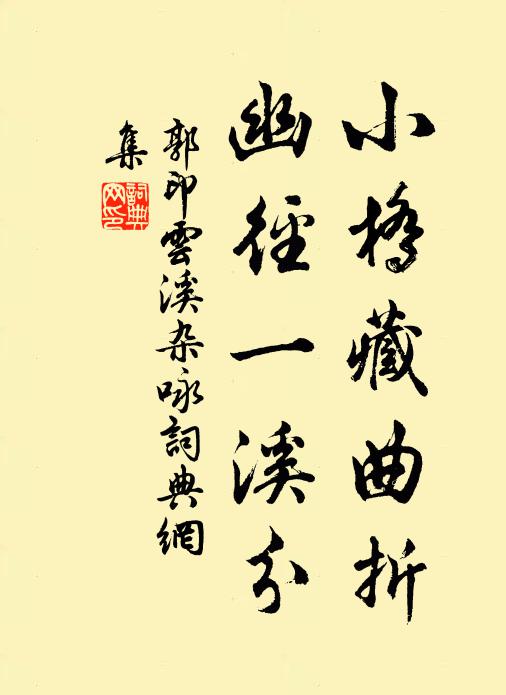 小橋藏曲折
幽徑一溪分
郭印雲溪杂咏詞典網
集
詞典网印